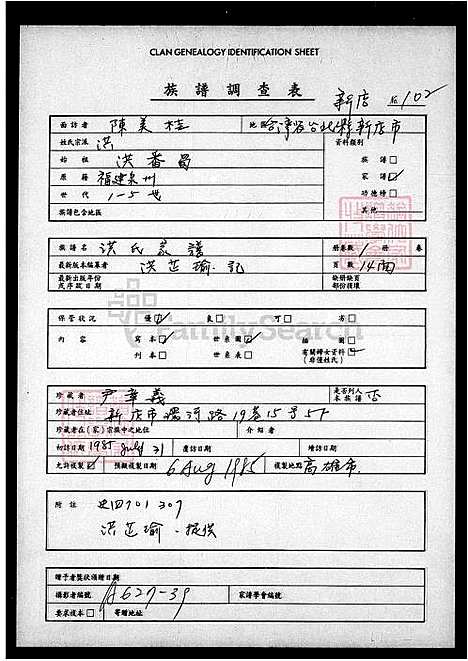 CLAN GENEALOGY IDENTIFICATION SHEET
族譜調查表
新店 № 102
面訪者 陳美桂 地區 台灣省台北縣新店市
姓氏宗派 洪 資料類別
始祖 洪番昌 族譜□
原籍 福建泉州 家譜☑
世代 1-5世 功德榜□
族譜包含地區 其他
族譜名 洪氏家譜 册卷數 1 册 卷
最新版本編纂者 洪芷瑜.記 頁數 14面
最新出版年份 缺册缺頁
或序跋日期 部份損壞
FamilySearch
保管狀況 優☑ 良□ 可□ 劣□
內容 寫本☑ 世系圖☑ 插圖□
刊本□ 世系表□ 有關婦女資料☑
(府僅姓氏)
珍藏者 尹章義 是否列入本族譜 否
珍藏者住址 新店市環河路19巷15号5F
珍藏者在(家)宗族中之地位 介紹者
初訪日期 1985 July 31 復訪日期 增訪日期
允許複製☑ 預擬複製日期 6 Aug 1985 複製地點 高雄市
附註 史四701 307
洪芷瑜.提供
贈予者獎狀頒贈日期
攝影者編號 A627-39 家譜學會編號
要求複本□ 寄贈地址